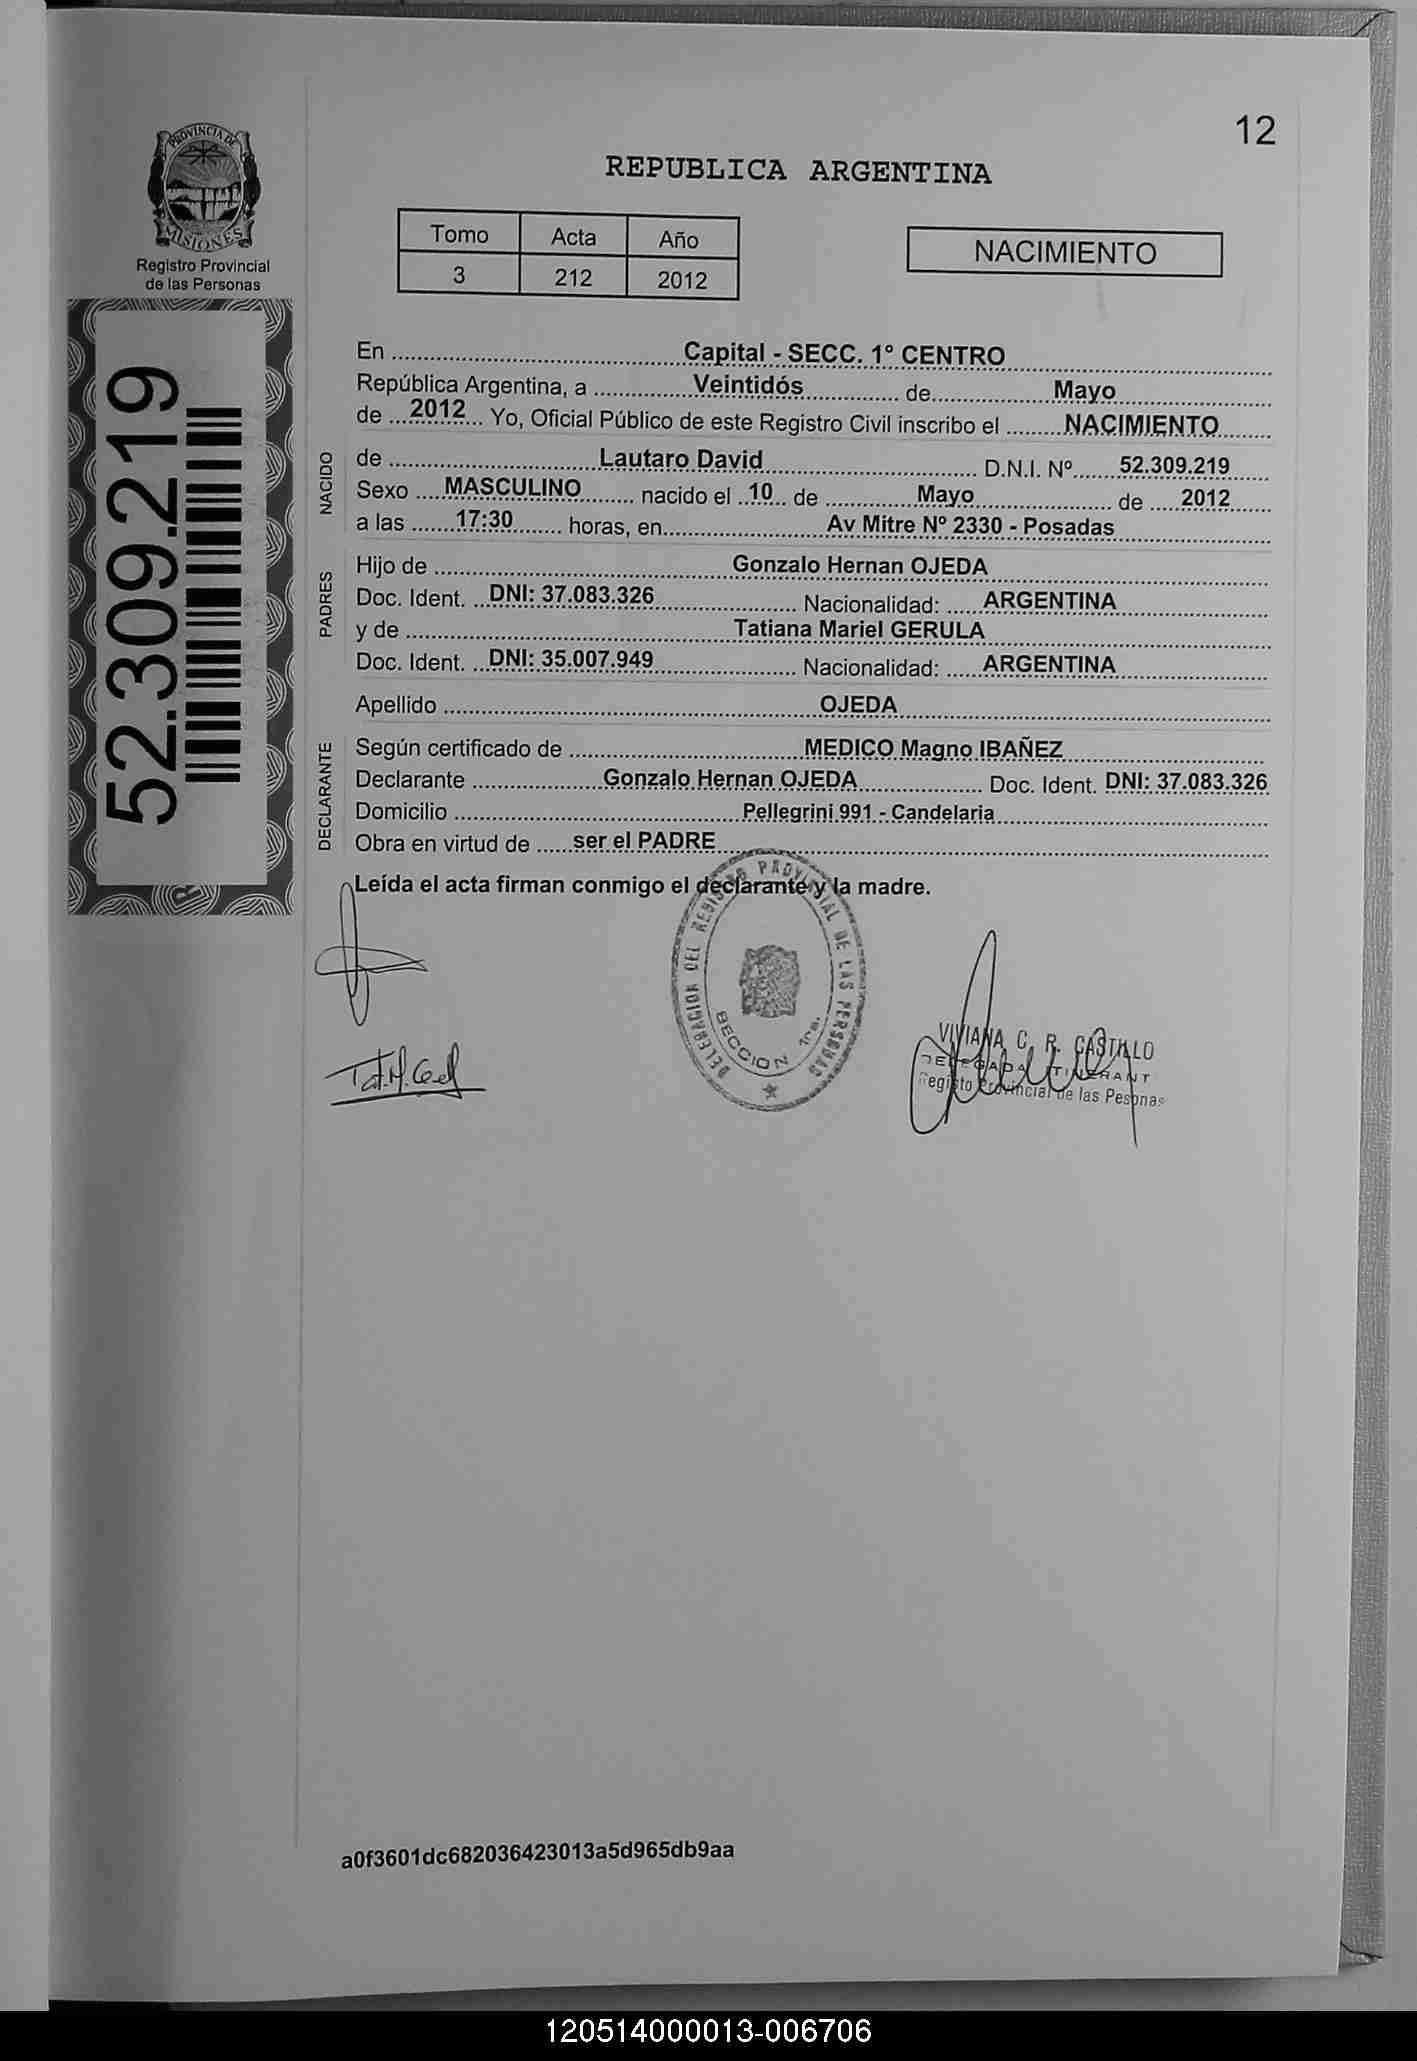 12
PROVINCIA DE
MISIONES
Registro Provincial
de las Personas
REPUBLICA ARGENTINA
Tomo Acta Año
3 212 2012
NACIMIENTO
52.309.219
En Capital - SECC. 1° CENTRO
República Argentina, a Veintidós de Mayo
de 2012 Yo, Oficial Público de este Registro Civil inscribo el NACIMIENTO
NACIDO
de Lautaro David D.N.I. Nº 52.309.219
Sexo MASCULINO nacido el 10 de Mayo de 2012
a las 17:30 horas, en Av Mitre Nº 2330 - Posadas
PADRES
Hijo de Gonzalo Hernan OJEDA
Doc. Ident. DNI: 37.083.326 Nacionalidad: ARGENTINA
y de Tatiana Mariel GERULA
Doc. Ident. DNI: 35.007.949 Nacionalidad: ARGENTINA
Apellido OJEDA
DECLARANTE
Según certificado de MEDICO Magno IBAÑEZ
Declarante Gonzalo Hernan OJEDA Doc. Ident. DNI: 37.083.326
Domicilio Pellegrini 991 - Candelaria
Obra en virtud de ser el PADRE
Leída el acta firman conmigo el declarante y la madre.
DELEGACION DEL REGISTRO PROVINCIAL DE LAS PERSONAS
SECCION 1ra.
VIVIANA C. R. CASTILLO
DELEGADA ITINERANT
Registo Provincial de las Pesonas
a0f3601dc682036423013a5d965db9aa
120514000013-006706